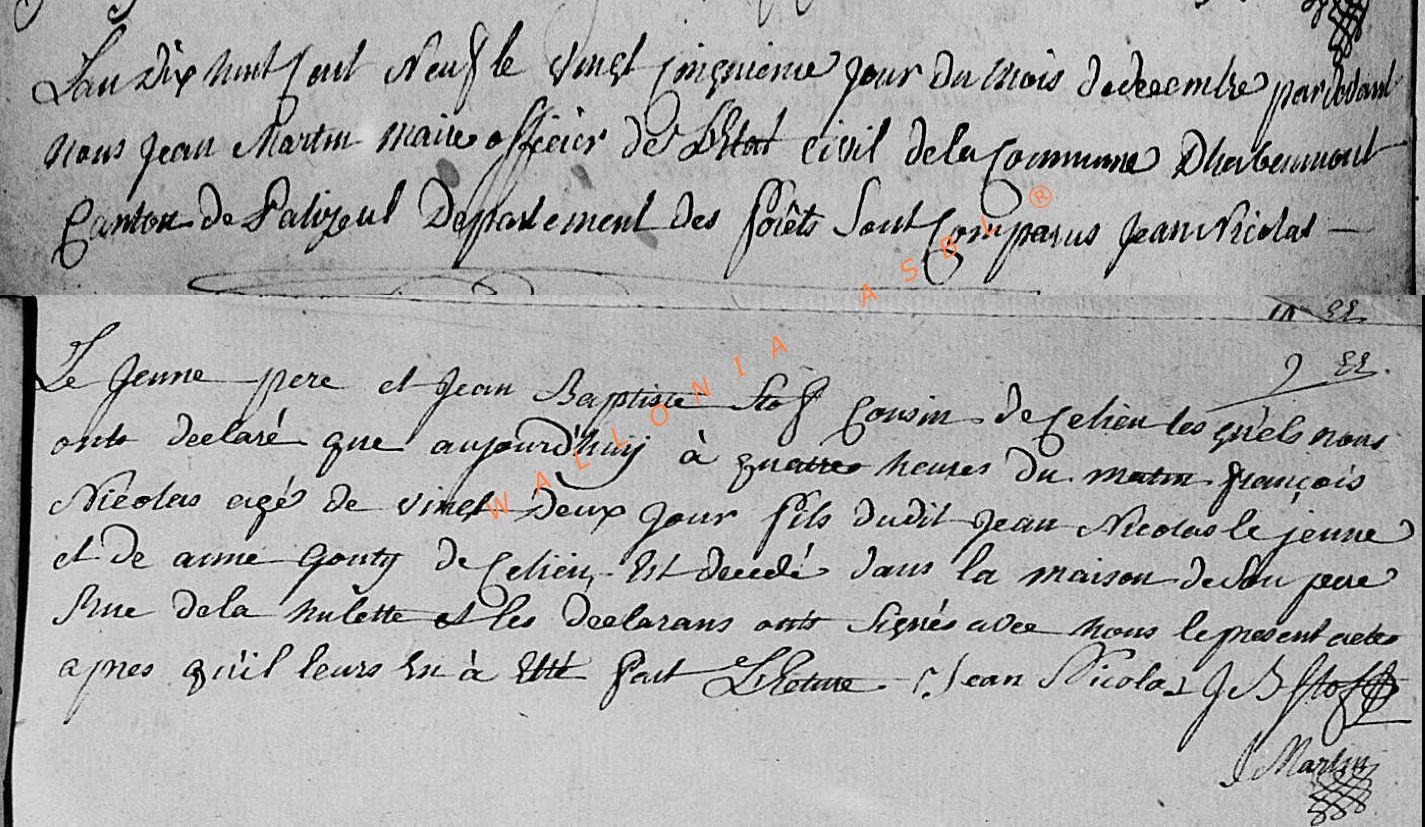 Lan Dix huit Cent Neuf le vingt Cinquieme Jour du Mois de decembre pardevant
nous Jean Martin maire officier de LEtat Civil de la Commune Dherbeumont
Canton de Palizeul Departement des forêts Sont Comparus Jean Nicolas —
22
2 22.
Le Jeune pere et Jean Baptiste Stof Cousin de Celieu les quels nous
onts declaré que aujourd'huy à quattre heures du matin françois
Nicolas agé de vingt Deux Jour fils dudit Jean Nicolas le jeune
et de anne Gouty de Celieu Est decedé dans la maison de Son pere
Rue de la hulette et les declarans onts Signés avec nous le present acte
apres qu'il leurs En à Etté fait Lecture Jean Nicolas J B Stoff
J Martin
WALLONIA ASBL ®